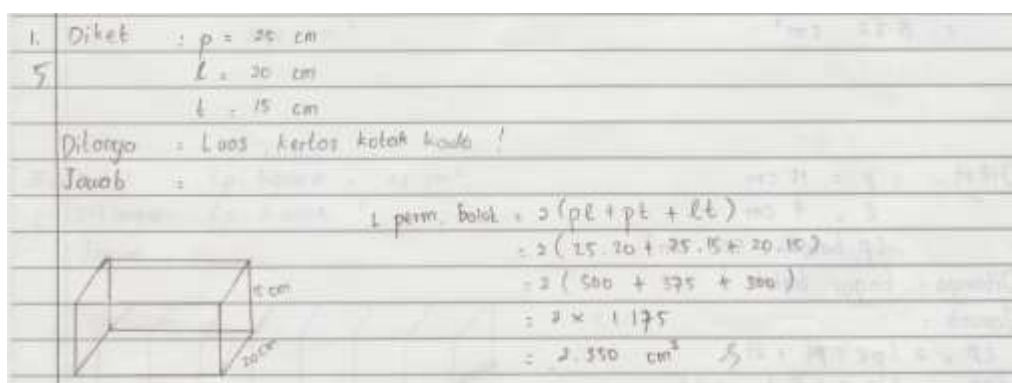 1. Diket : p = 25 cm
5 l = 20 cm
t = 15 cm
Ditanya : Luas kertas kotak kado !
Jawab :
L perm. balok = 2 (pl + pt + lt)
= 2 (25.20 + 25.15 + 20.15)
= 2 (500 + 375 + 300)
= 2 × 1.175
= 2.350 cm² 5
15 cm
20 cm